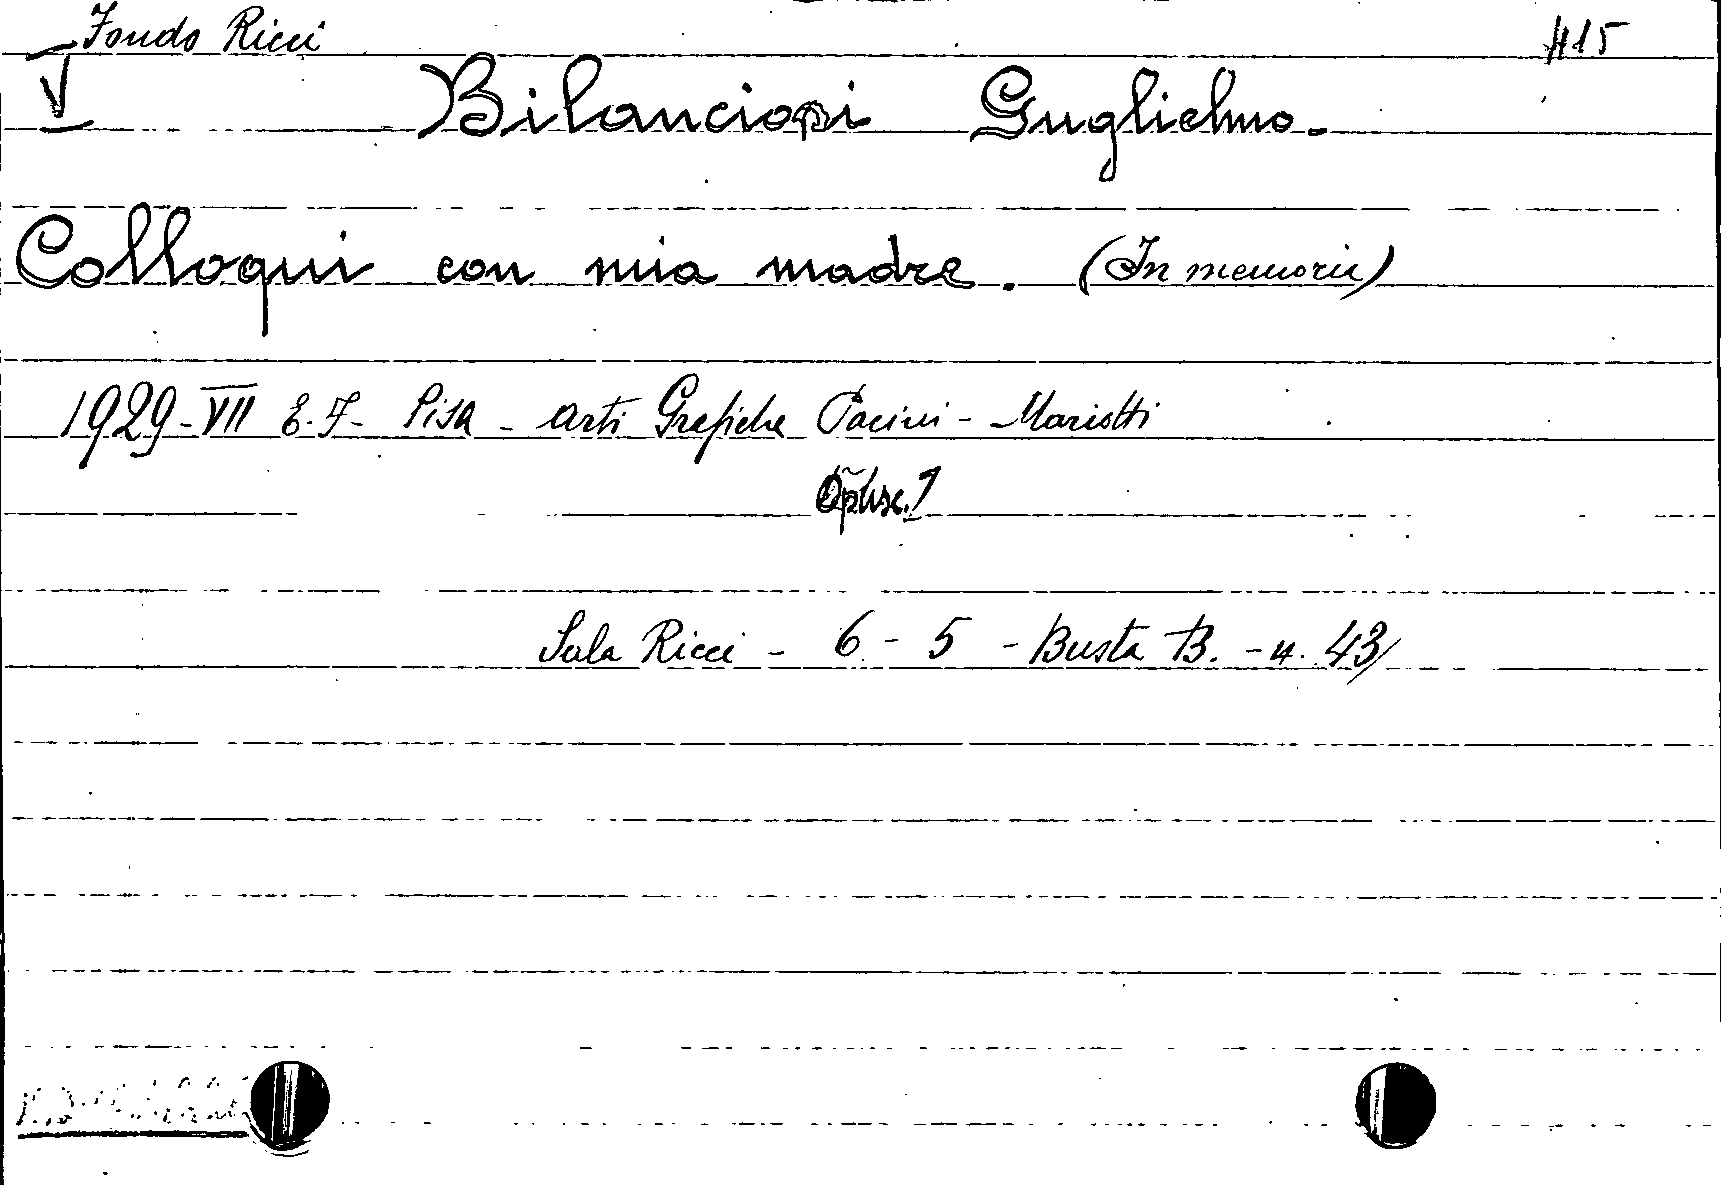 Fondo Ricci 415
V
Bilancioni Guglielmo.
Colloqui con mia madre. (In memoria)
1929-VII E.F- Pisa - Arti Grafiche Pacini - Mariotti
Opusc.
Sala Ricci - 6 - 5 - Busta B. - n. 43